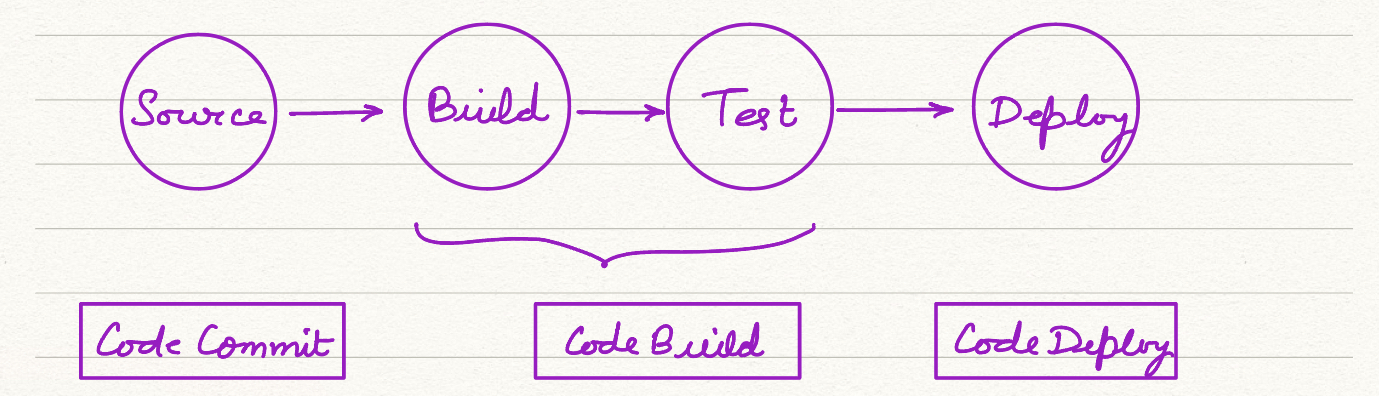 Source Build Test Deploy
Code Commit Code Build Code Deploy